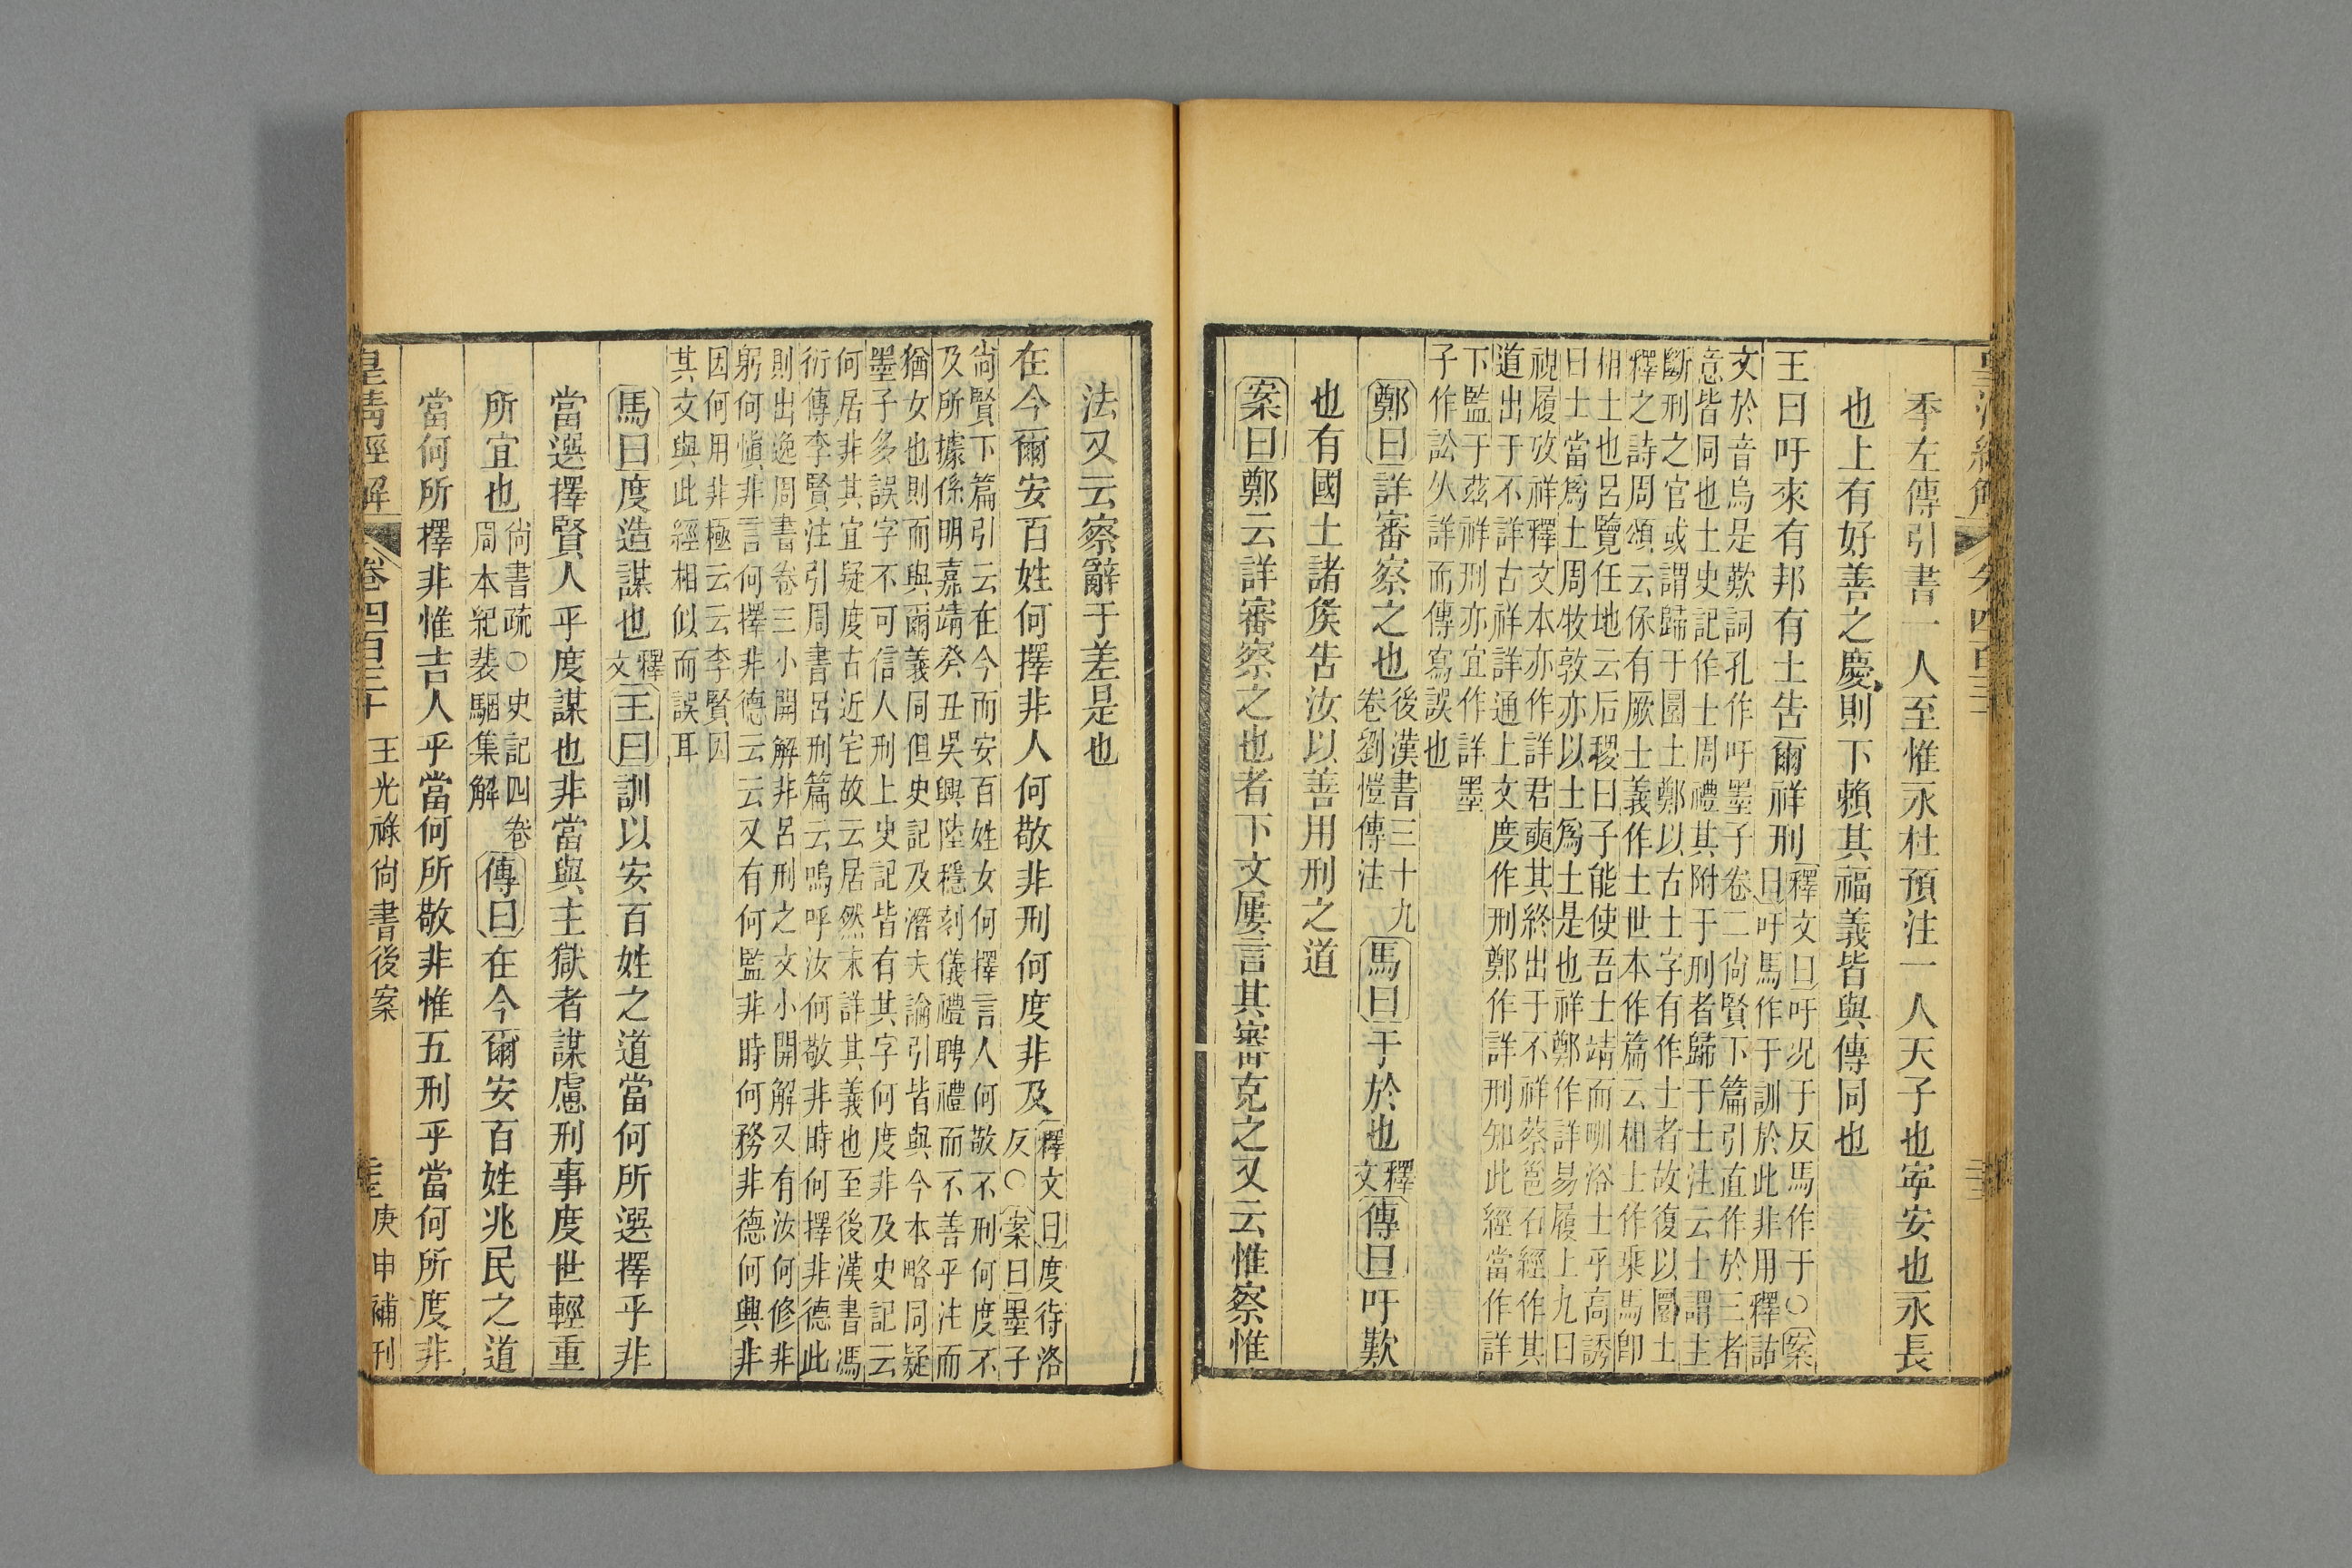 年左傳引書一人至惟永杜預注一人天子也寧安也永長
也上有好善之慶則下賴其福義皆與傳同也
王曰吁來有邦有土告爾祥刑
釋文曰吁况于反馬作于〇案
曰吁馬作于訓於此非用釋詁
文於音烏是歎詞孔作吁墨子卷二尚賢下篇引直作於三者
意皆同也士史記作士周禮其附于刑者歸于士注云士謂主
斷刑之官或謂歸于圜土鄭以古土字有作士者故復以圜土
釋之詩周頌云保有厥士義作土世本作篇云相士作乘馬卽
相土也呂覽任地云后稷曰子能使吾土靖而甽浴土乎高誘
曰士當爲土周牧敦亦以士爲土是也祥鄭作詳易履上九曰
視履攷祥釋文本亦作詳君奭其終出于不祥蔡邕石經作其
道出于不詳古祥詳通上文度作刑鄭作詳刑知此經當作詳
下監于茲祥刑亦宜作詳墨
子作訟从詳而傳寫誤也
鄭曰詳審察之也
後漢書三十九
卷劉愷傳注
馬曰于於也
釋
文
傳曰吁歎
也有國土諸矦告汝以善用刑之道
案曰鄭云詳審察之也者下文屢言其審克之又云惟察惟
法又云察辭于差是也
在今爾安百姓何擇非人何敬非刑何度非及
釋文曰度待洛
反〇案曰墨子
尚賢下篇引云在今而安百姓女何擇言人何敬不刑何度不
及所據係明嘉靖癸丑吳興陸穩刻儀禮聘禮而不善乎注而
猶女也則而與爾義同但史記及潛夫論引皆與今本略同疑
墨子多誤字不可信人刑上史記皆有其字何度非及史記云
何居非其宜疑度古近宅故云居然末詳其義也至後漢書馮
衍傳李賢注引周書呂刑篇云嗚呼汝何敬非時何擇非德此
則出逸周書卷三小開解非呂刑之文小開解又有汝何修非
躬何愼非言何擇非德云云又有何監非時何務非德何興非
因何用非極云云李賢因
其文與此經相似而誤耳
馬曰度造謀也
釋
文
王曰訓以安百姓之道當何所選擇乎非
當選擇賢人乎度謀也非當與主獄者謀慮刑事度世輕重
所宜也
尚書疏〇史記四卷
周本紀裴駰集解
傳曰在今爾安百姓兆民之道
當何所擇非惟吉人乎當何所敬非惟五刑乎當何所度非
皇清經解
卷四百三十
王光祿尚書後案
庚申補刊